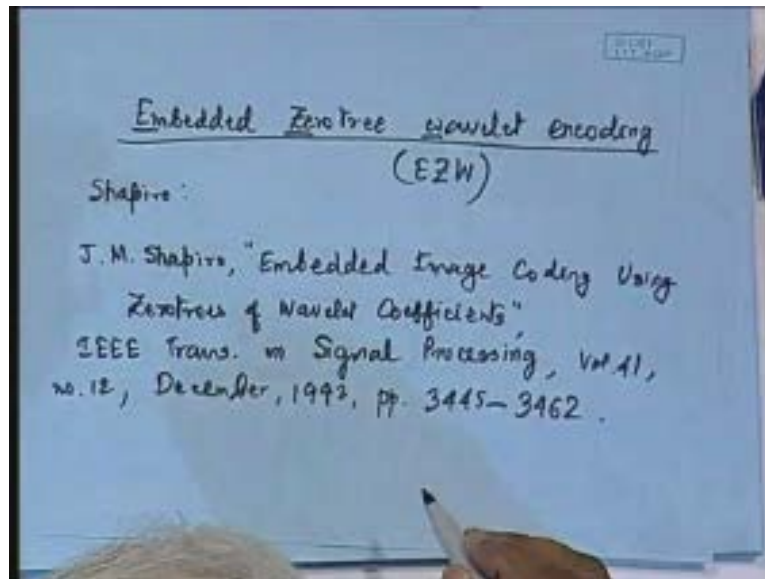 Embedded Zerotree Wavelet encoding
(EZW)
Shapiro:
J.M. Shapiro, "Embedded Image Coding Using
Zerotrees of Wavelet Coefficients",
IEEE Trans. on Signal Processing, Vol. 41,
no. 12, December, 1993, pp. 3445-3462.